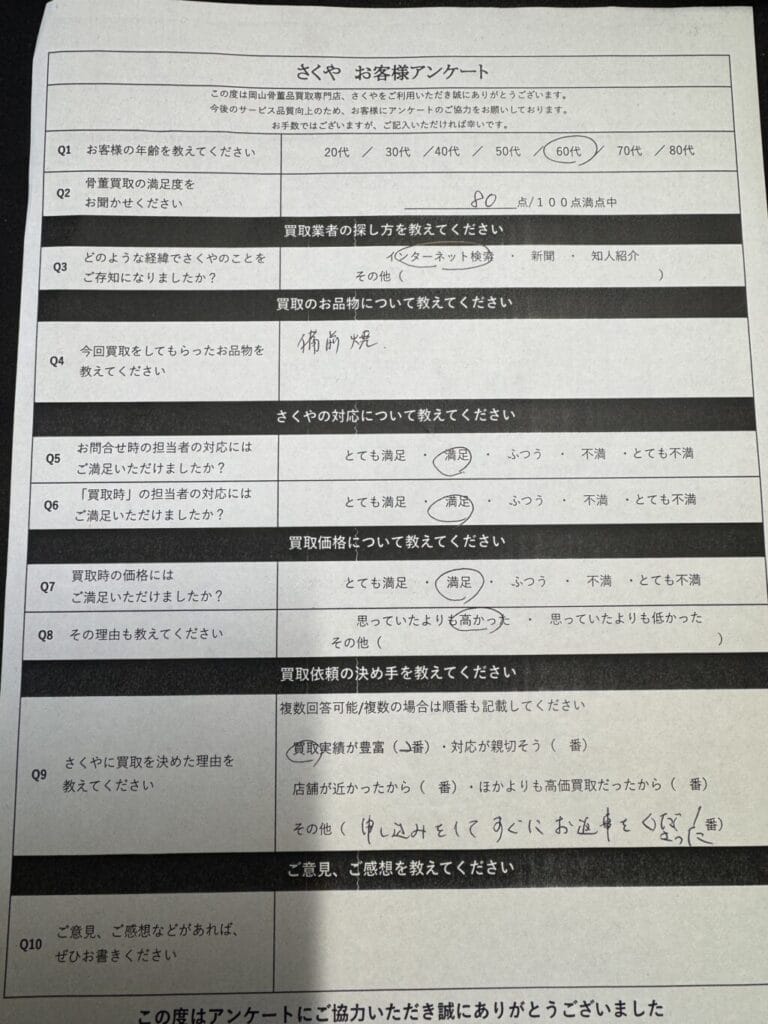 さくや お客様アンケート
この度は岡山骨董品買取専門店、さくやをご利用いただき誠にありがとうございます。
今後のサービス品質向上のため、お客様にアンケートのご協力をお願いしております。
お手数ではございますが、ご記入いただければ幸いです。
Q1 お客様の年齢を教えてください 20代 / 30代 /40代 / 50代 / 60代 / 70代 / 80代
Q2 骨董買取の満足度を
お聞かせください
80 点/100点満点中
買取業者の探し方を教えてください
Q3 どのような経緯でさくやのことを
ご存知になりましたか?
インターネット検索 ・ 新聞 ・ 知人紹介
その他( )
買取のお品物について教えてください
Q4 今回買取をしてもらったお品物を
教えてください
備前焼.
さくやの対応について教えてください
Q5 お問合せ時の担当者の対応には
ご満足いただけましたか?
とても満足 ・ 満足 ・ ふつう ・ 不満 ・とても不満
Q6 「買取時」の担当者の対応には
ご満足いただけましたか?
とても満足 ・ 満足 ・ ふつう ・ 不満 ・とても不満
買取価格について教えてください
Q7 買取時の価格には
ご満足いただけましたか?
とても満足 ・ 満足 ・ ふつう ・ 不満 ・とても不満
Q8 その理由も教えてください
思っていたよりも高かった ・ 思っていたよりも低かった
その他( )
買取依頼の決め手を教えてください
Q9 さくやに買取を決めた理由を
教えてください
複数回答可能/複数の場合は順番も記載してください
買取実績が豊富(2番)・対応が親切そう( 番)
店舗が近かったから( 番)・ほかよりも高価買取だったから( 番)
その他( 申し込みをしてすぐにお返事をくださった 1番)
ご意見、ご感想を教えてください
Q10 ご意見、ご感想などがあれば、
ぜひお書きください
この度はアンケートにご協力いただき誠にありがとうございました